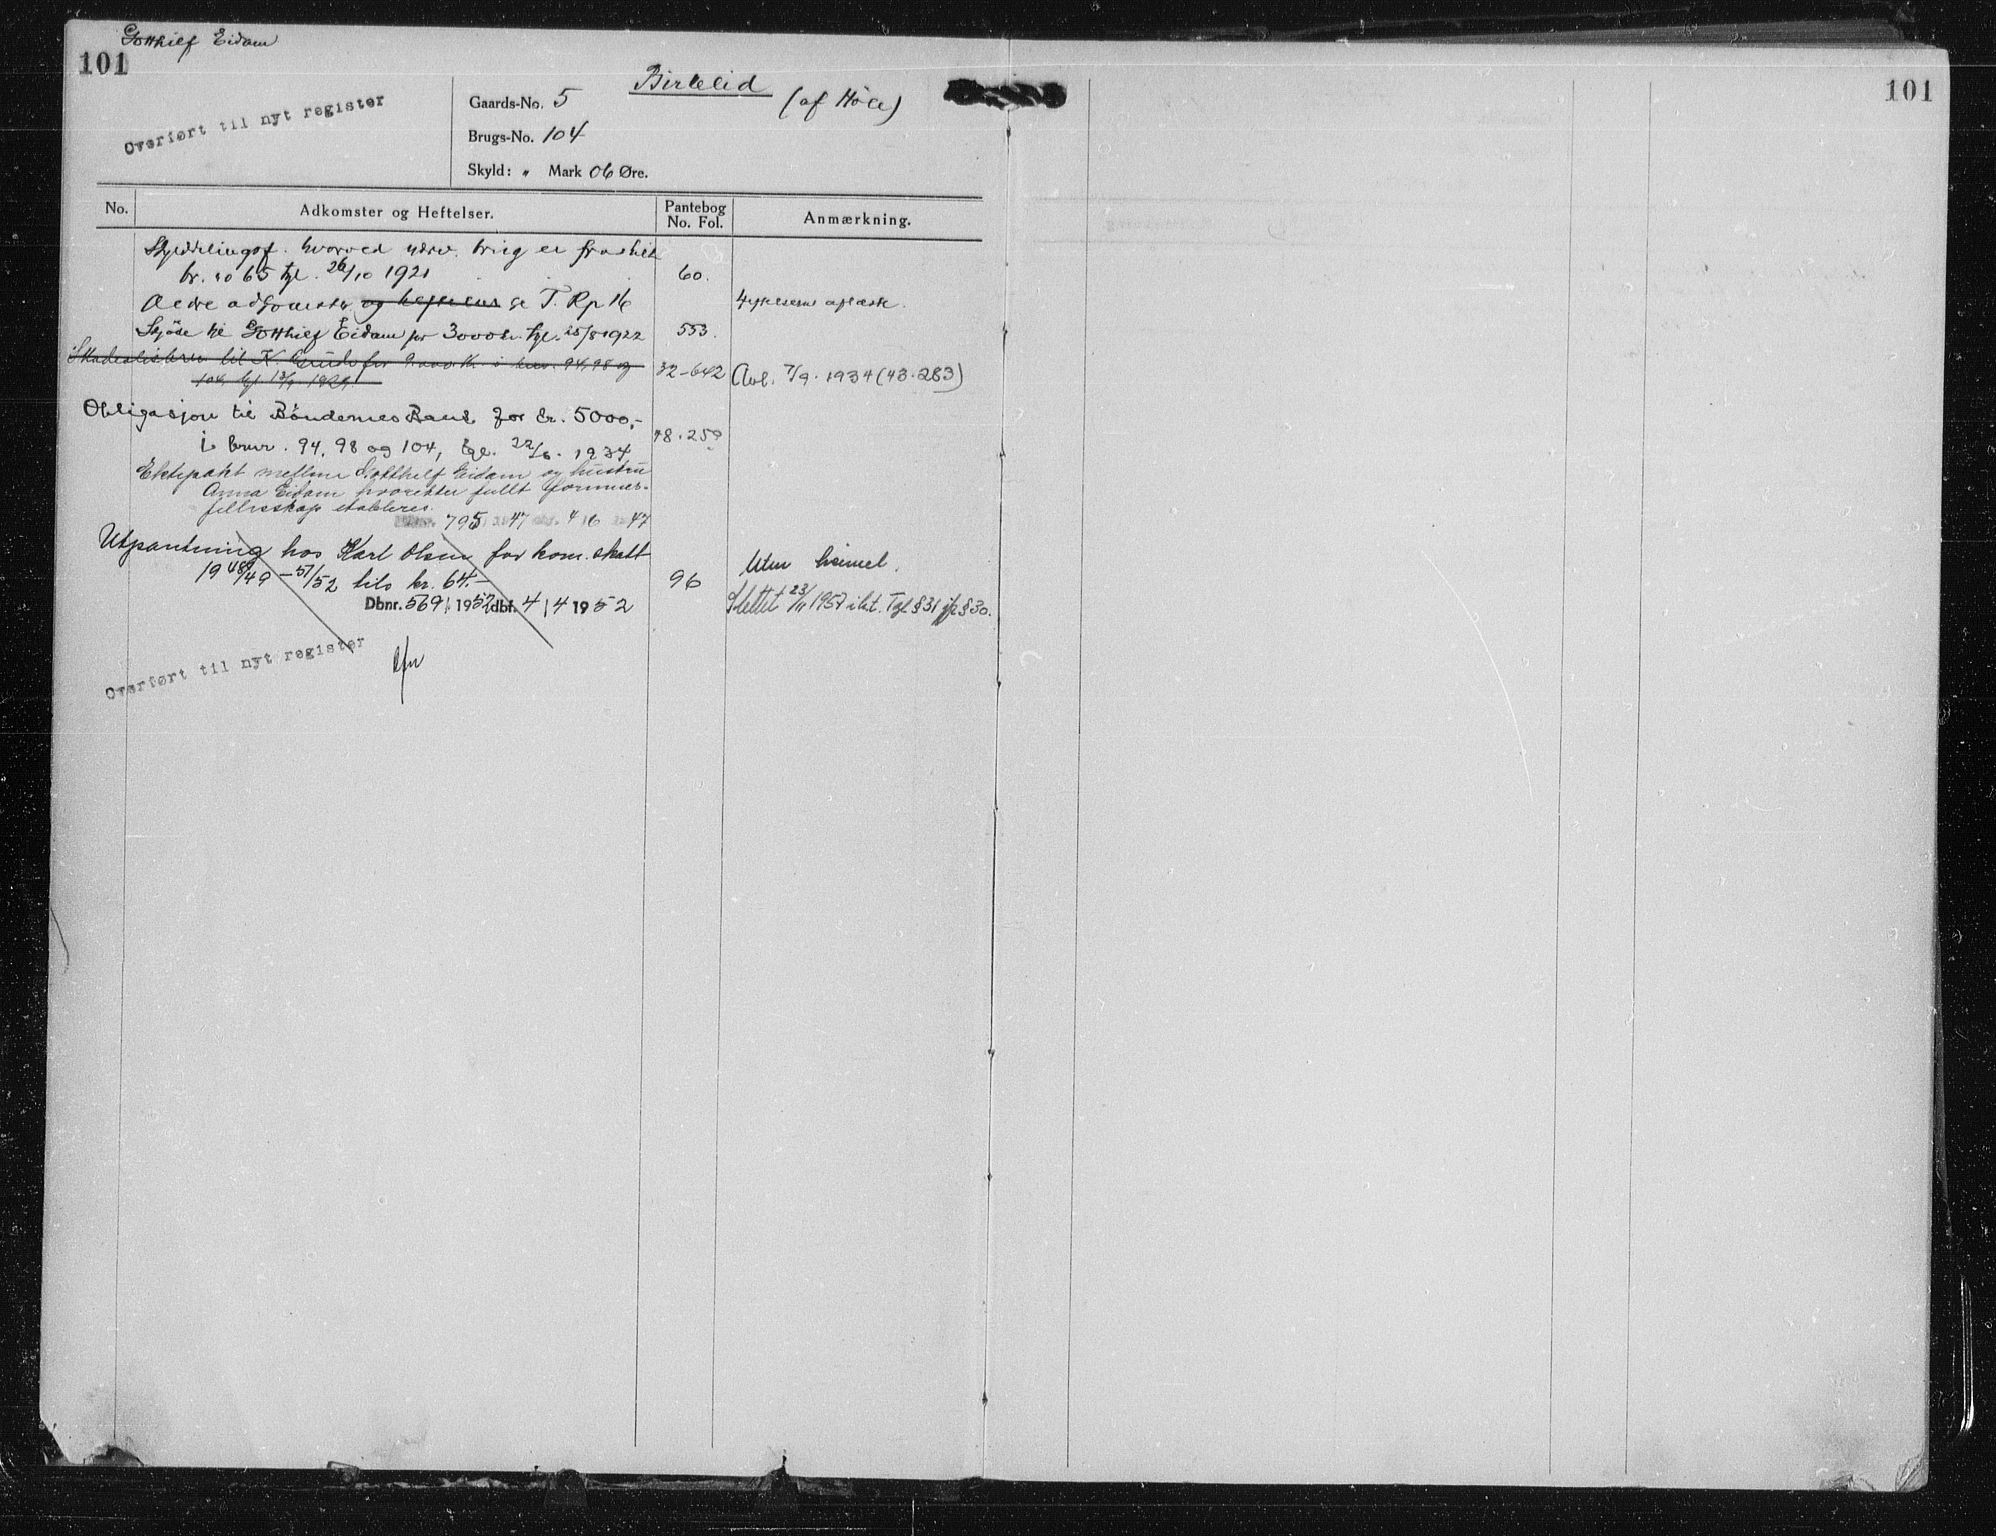 Gotthilf Eidam
101
101
Birkelid (af Höie)
Overført til nyt register
Gaards-No. 5
Brugs-No. 104
Skyld: " Mark 06 Øre.
No. Adkomster og Heftelser. Pantebog No. Fol. Anmærkning.
hvorved brug er fraskilt
br. no 65 tgl. 26/10 1921 60.
Aeldre adkomster og heftelser se T. Rp 16
Skjöde til Gotthilf Eidam for 3000 kr. tgl. 25/8 1922 553.
Skadeslösbrev til for i bnr. 94, 98 og 32-642 Avl. 7/9. 1934 (43.283)
104, tgl. 13/
Obligasjon til Böndernes Bank for kr. 5000,-
i bnr. 94, 98 og 104, tgl. 22/6. 1934
Ektepakt mellem Gotthelf Eidam og hustru
Anna Eidam hvoretter fullt formues-
fellesskap etableres.
795 47 4 6 47
Utpantning hos Karl Olsen for kom. skatt Uten hjemmel.
1948/49 - 51/52 tils kr. 64.- 96
Dbnr. 569 1952 dbf. 4/4 1952 Slettet 23/11 1957 i h.t. Tgl § 31 jfr § 30.
Overført til nyt register